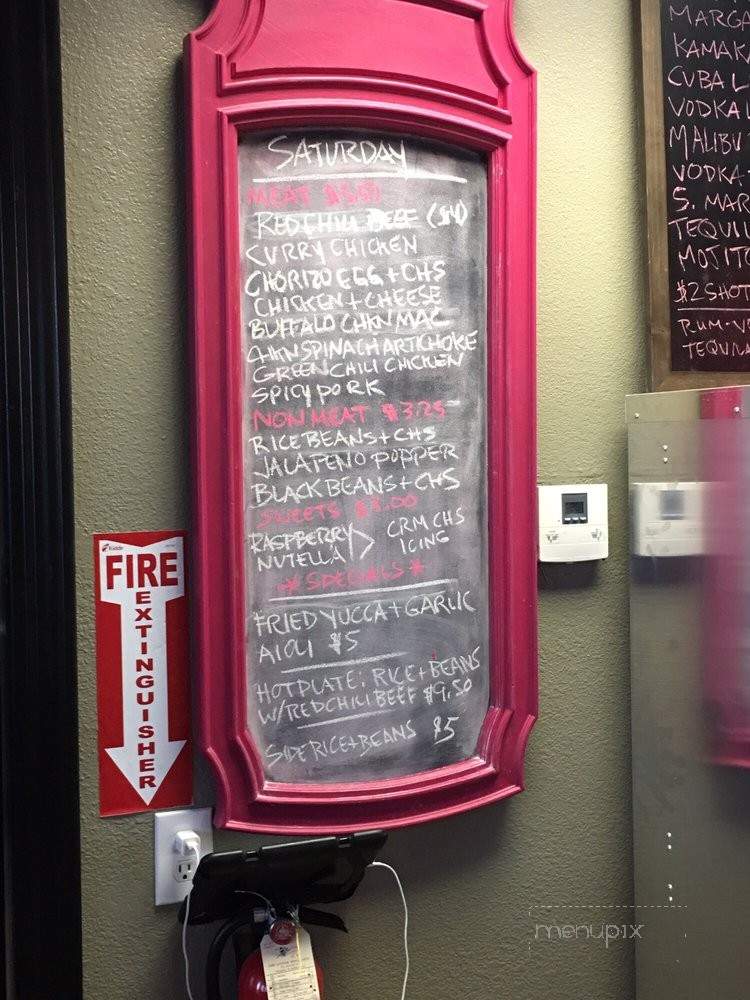 SATURDAY
RED CHILI BEEF ($4)
CURRY CHICKEN
CHORIZO EGG + CHS
CHICKEN + CHEESE
BUFFALO CHKN MAC
CHKN SPINACH ARTICHOKE
GREEN CHILI CHICKEN
SPICY PORK
NON MEAT $3.25
RICE BEANS + CHS
JALAPENO POPPER
BLACK BEANS + CHS
SWEETS $3.00
RASPBERRY
NUTELLA > CRM CHS
ICING
*SPECIALS*
FRIED YUCCA + GARLIC
AIOLI $5
HOT PLATE: RICE + BEANS
W/ RED CHILI BEEF $9.50
SIDE RICE + BEANS $5
Kidde
FIRE
EXTINGUISHER
MARGA
KAMAK
CUBA L
VODKA
MALIBU
VODKA
S. MAR
TEQUIL
MOJITO
$2 SHOT
RUM-V
TEQUILA
menupix